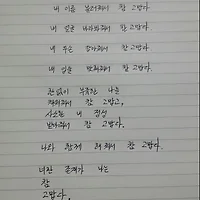 내 이름 불러줘서 참 고맙다.
내 얼굴 바라봐줘서 참 고맙다.
내 손 잡아줘서 참 고맙다.
내 입술 맞춰줘서 참 고맙다.
한없이 부족한 나를
채워줘서 참 고맙고,
사소한 내 정성
받아줘서 참 고맙다.
나와 함께 해 줘서 참 고맙다.
너란 존재가 나는
참
고맙다.